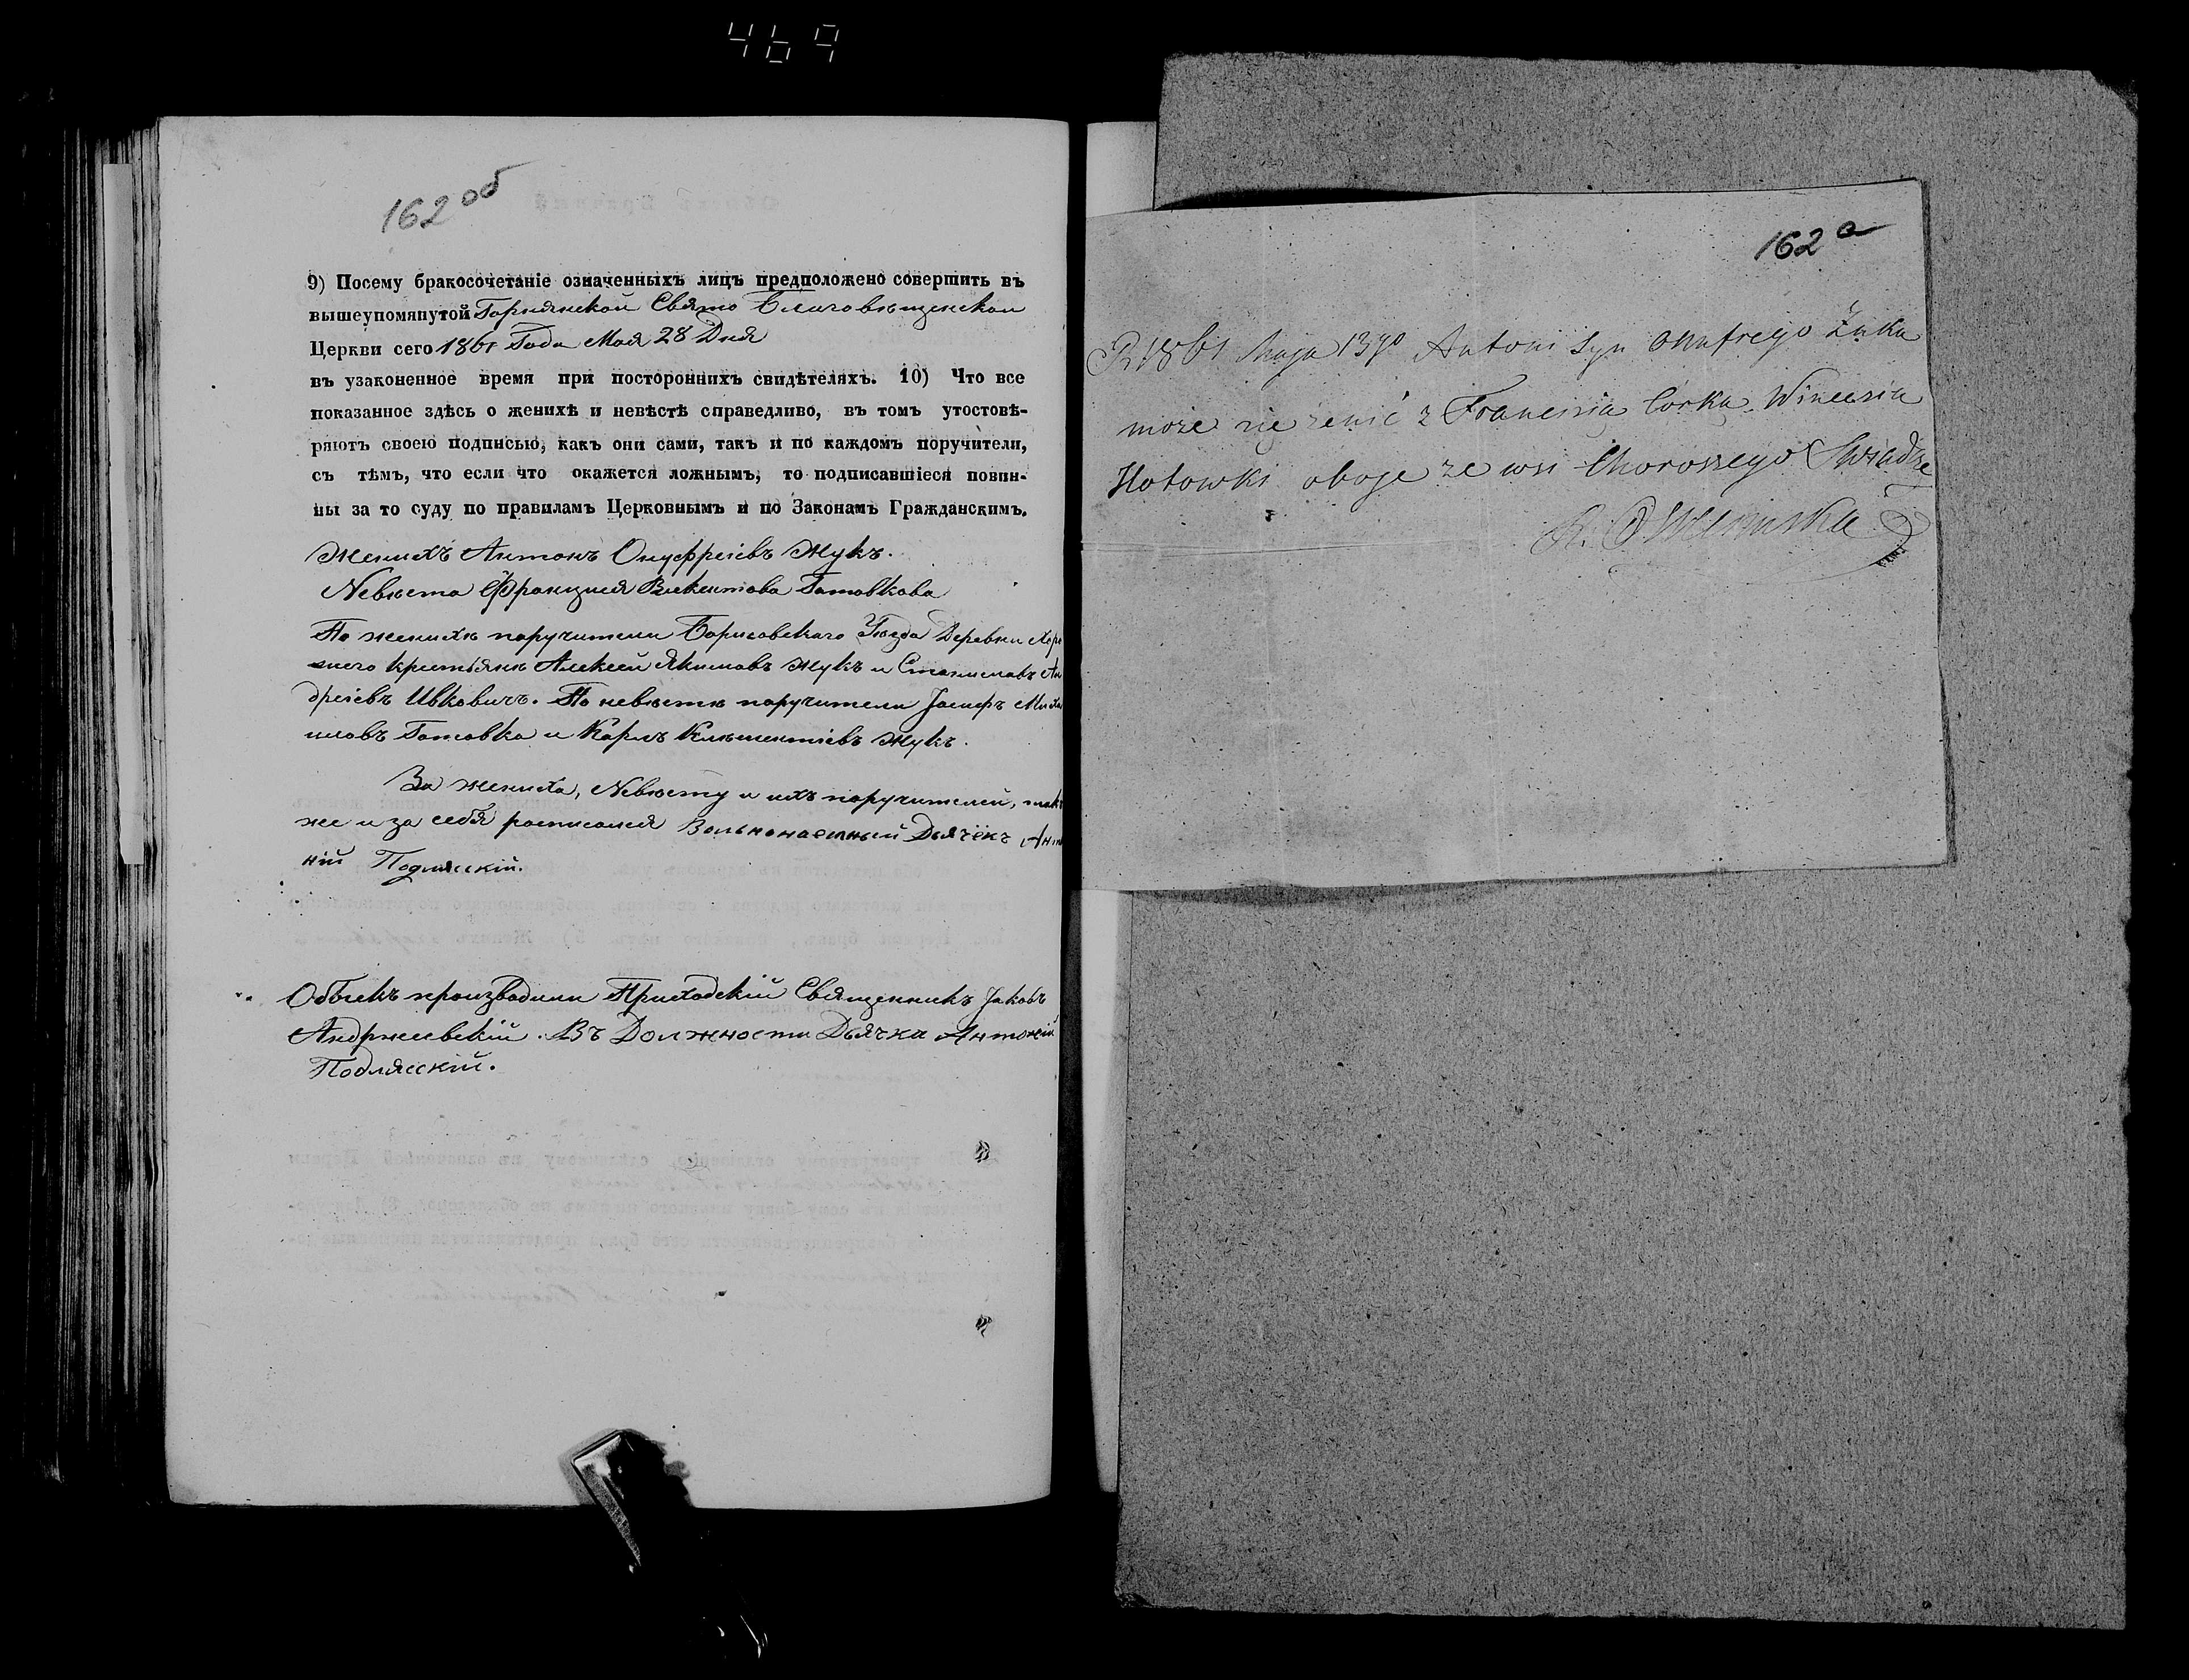 469
162 об
9) Посему бракосочетаніе означенныхъ лицъ предположено совершить въ
вышеупомянутой Горнянской Свято Благовѣщенской
Церкви сего 1861 Года Мая 28 Дня
въ узаконенное время при постороннихъ свидѣтеляхъ. 10) Что все
показанное здѣсь о женихѣ и невѣстѣ справедливо, въ томъ утостовѣ-
ряютъ своею подписью, какъ они сами, такъ и по каждомъ поручители,
съ тѣмъ, что если что окажется ложнымъ, то подписавшіеся повин-
ны за то суду по правиламъ Церковнымъ и по Законамъ Гражданскимъ.
Женихъ Антонъ Онуфріевъ Жукъ.
Невѣста Францишя Викентова Готовкова
По женихѣ поручители Борисовскаго Уѣзда Деревни Хоро
шего крестьяне Алексей Якимовъ Жукъ и Станиславъ Ан
дреевъ Ивковичъ. По невѣстѣ поручители Іосифъ Миха
иловъ Готовка и Карлъ Клементіевъ Жукъ.
За жениха, Невѣсту и ихъ поручителей, такъ
же и за себя росписался Вольнонаемный Дьячёкъ Анто
ній Подлясскій.
Обыскъ производили Приходскій Священникъ Іаковъ
Андржеевскій. Въ Должности Дьячка Антоній
Подлясскій.
162 а
R 1861 Maja 13go Antoni Syn Onufrego Żuka
może się żenić z Francisią Corką Wincesia
Hotowki oboje ze wsi Choroszego Swiadze